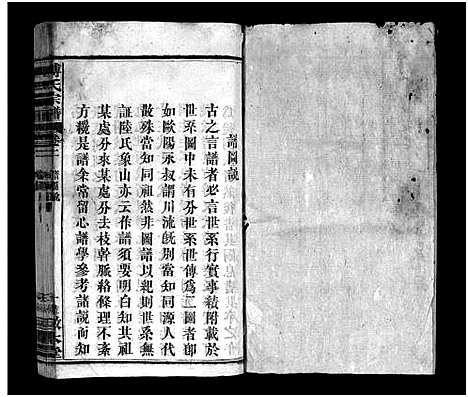 譜圖說
古之言譜者必言世系行實事積附載於
世系圖中未有分世系世傳為二圖者卽
如歐陽永叔謂川流旣別當知同源人代
散殊當知同祖然非圖譜以紀則世系無
証陸氏象山亦云作譜須要明白知其祖
某處分來某處分去枝幹脈絡條理不紊
方穩是譜余常留心譜學參考諸說而知
氏宗譜
卷二
譜圖說